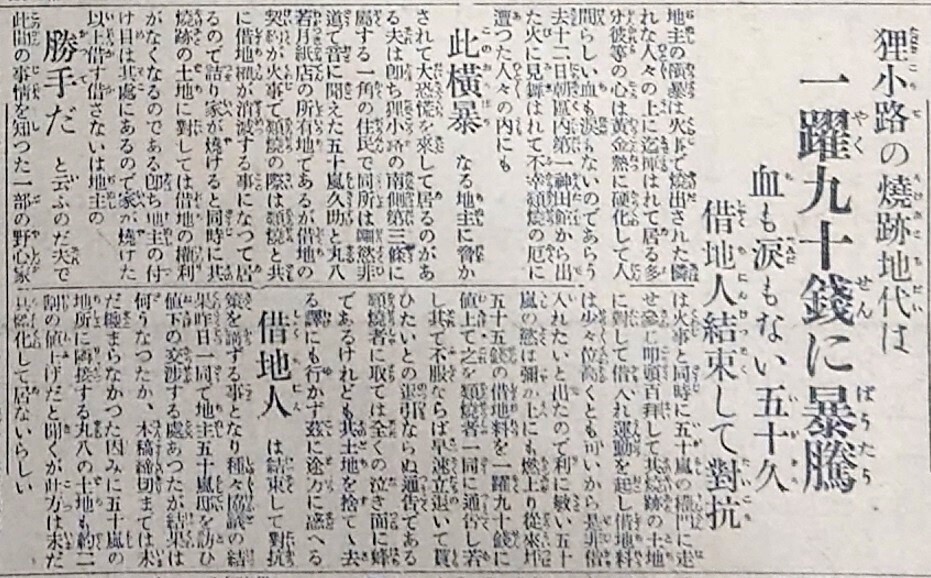 狸小路の燒跡地代は
一躍九十錢に暴騰
血も淚もない五十久
借地人結束して對抗
地主の橫暴は火事で燒出された憐
れな人々の上に迄揮はれて居る多
分彼等の心は黃金熱に硬化して人
間らしい血も淚もないのであらう
去十二日朝區內第一神田館から出
た火に見舞はれて不幸類燒の厄に
遭つた人々の內にも
此橫暴 なる地主に脅か
されて大恐慌を來して居るのがあ
る夫は卽ち狸小路の南側第三條に
屬する一角の住民で同所は 慾非
道で音に聞えた五十嵐久助と丸八
若月紙店の所有地であるが借地の
契約が火事で類燒の際は類燒と共
に借地權が消滅する事になつて居
るので詰り家が燒けると同時に共
燒跡の土地に對しては借地の權利
がなくなるのである卽ち地主の付
け目は其處にあるので家が燒けた
以上借す借さないは地主の
勝手だ と云ふのだ夫で
此間の事情を知つた一部の野心家
は火事と同時に五十嵐の 門に走
せ參じ叩頭百拜して其燒跡の土地
に對して借入れ運動を起し借地料
は少々位高くとも可いから是非借
入れたいと出たので利に敏い五十
嵐の慾は彌が上にも燃上り從來坪
五十五錢の借地料を一躍九十錢に
値上て之を類燒者一同に通告し若
し其で不服ならば早速立退いて貰
ひたいとの退引ならぬ通告である
類燒者に取ては全くの泣き面に蜂
であるけれども其土地を捨てゝ去
る譯にも行かず茲に途方に暮へる
借地人 は結束して對抗
策を講ずる事となり種々協議の結
果昨日一同で地主五十嵐邸を訪ひ
値下の交涉する處あつたが結果は
何うなつたか、本稿締切までは未
だ纏まらなかつた因みに五十嵐の
地所に隣接する丸八の土地も約二
割の値上げだと聞くが此方は未だ
化して居ないらしい